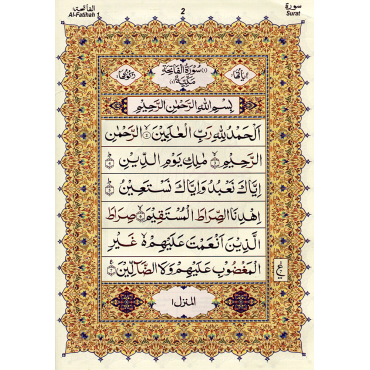 الفاتحة
Al-Fatihah 1
2
سورة
Surat
سُورَةُ الْفَاتِحَةِ
مَكِّيَّةٌ
بِسْمِ اللّٰهِ الرَّحْمٰنِ الرَّحِيْمِ
اَلْحَمْدُ لِلّٰهِ رَبِّ الْعٰلَمِيْنَ الرَّحْمٰنِ
الرَّحِيْمِ مٰلِكِ يَوْمِ الدِّيْنِ
اِيَّاكَ نَعْبُدُ وَاِيَّاكَ نَسْتَعِيْنُ
اِهْدِنَا الصِّرَاطَ الْمُسْتَقِيْمَ صِرَاطَ
الَّذِيْنَ اَنْعَمْتَ عَلَيْهِمْ غَيْرِ
الْمَغْضُوْبِ عَلَيْهِمْ وَلَا الضَّآلِّيْنَ
المنزل ١